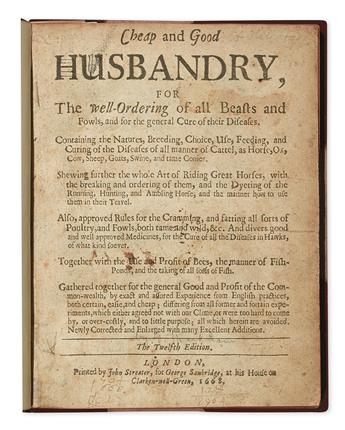 Cheap and Good
HUSBANDRY,
FOR
The well-Ordering of all Beaſts and
Fowls, and for the general Cure of their Diſeaſes.
Containing the Natures, Breeding, Choice, Uſe, Feeding, and
Curing of the Diſeaſes of all manner of Cattel, as Horſe, Ox,
Cow, Sheep, Goats, Swine, and tame Conies.
Shewing further the whole Art of Riding Great Horſes, with
the breaking and ordering of them, and the Dyeting of the
Running, Hunting, and Ambling Horſe, and the manner how to uſe
them in their Travel.
Alſo, approved Rules for the Cramming, and fatting all ſorts of
Poultry, and Fowls, both tame and wild, &c. And divers good
and well approved Medicines, for the Cure of all the Diſeaſes in Hawks,
of what kind ſoever.
Together with the Uſe and Profit of Bees, the manner of Fiſh-
Ponds, and the taking of all ſorts of Fiſh.
Gathered together for the general Good and Profit of the Com-
mon-wealth, by exact and aſſured Experience from Engliſh practices,
both certain, eaſie, and cheap; differing from all former and forraign experi-
ments, which either agreed not with our Clime, or were too hard to come
by, or over-coſtly, and to little purpoſe; all which herein are avoided.
Newly Corrected and Enlarged with many Excellent Additions.
The Twelfth Edition.
LONDON,
Printed by John Streater, for George Sawbridge, at his Houſe on
Clarken-well-Green, 1668.